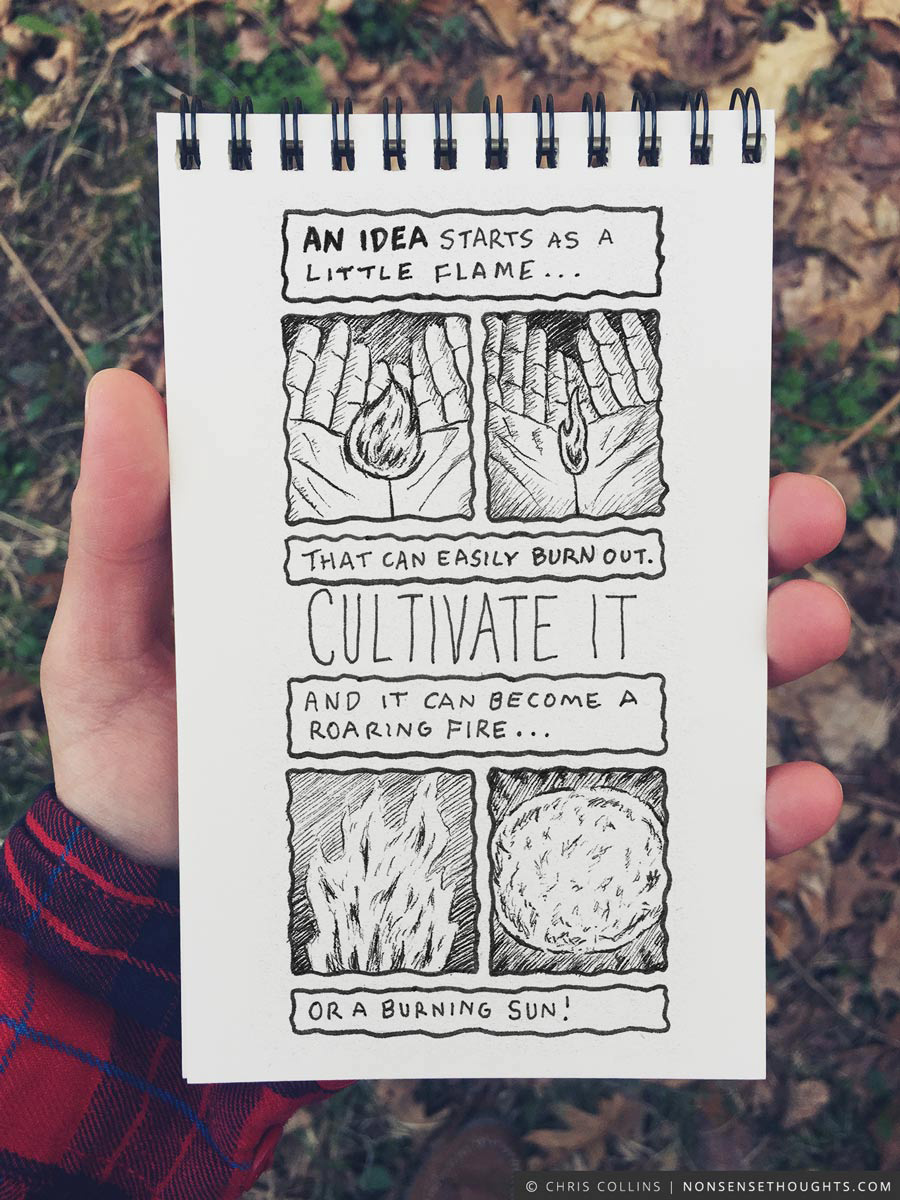 AN IDEA STARTS AS A
LITTLE FLAME...
THAT CAN EASILY BURN OUT.
CULTIVATE IT
AND IT CAN BECOME A
ROARING FIRE...
OR A BURNING SUN!
© CHRIS COLLINS | NONSENSETHOUGHTS.COM